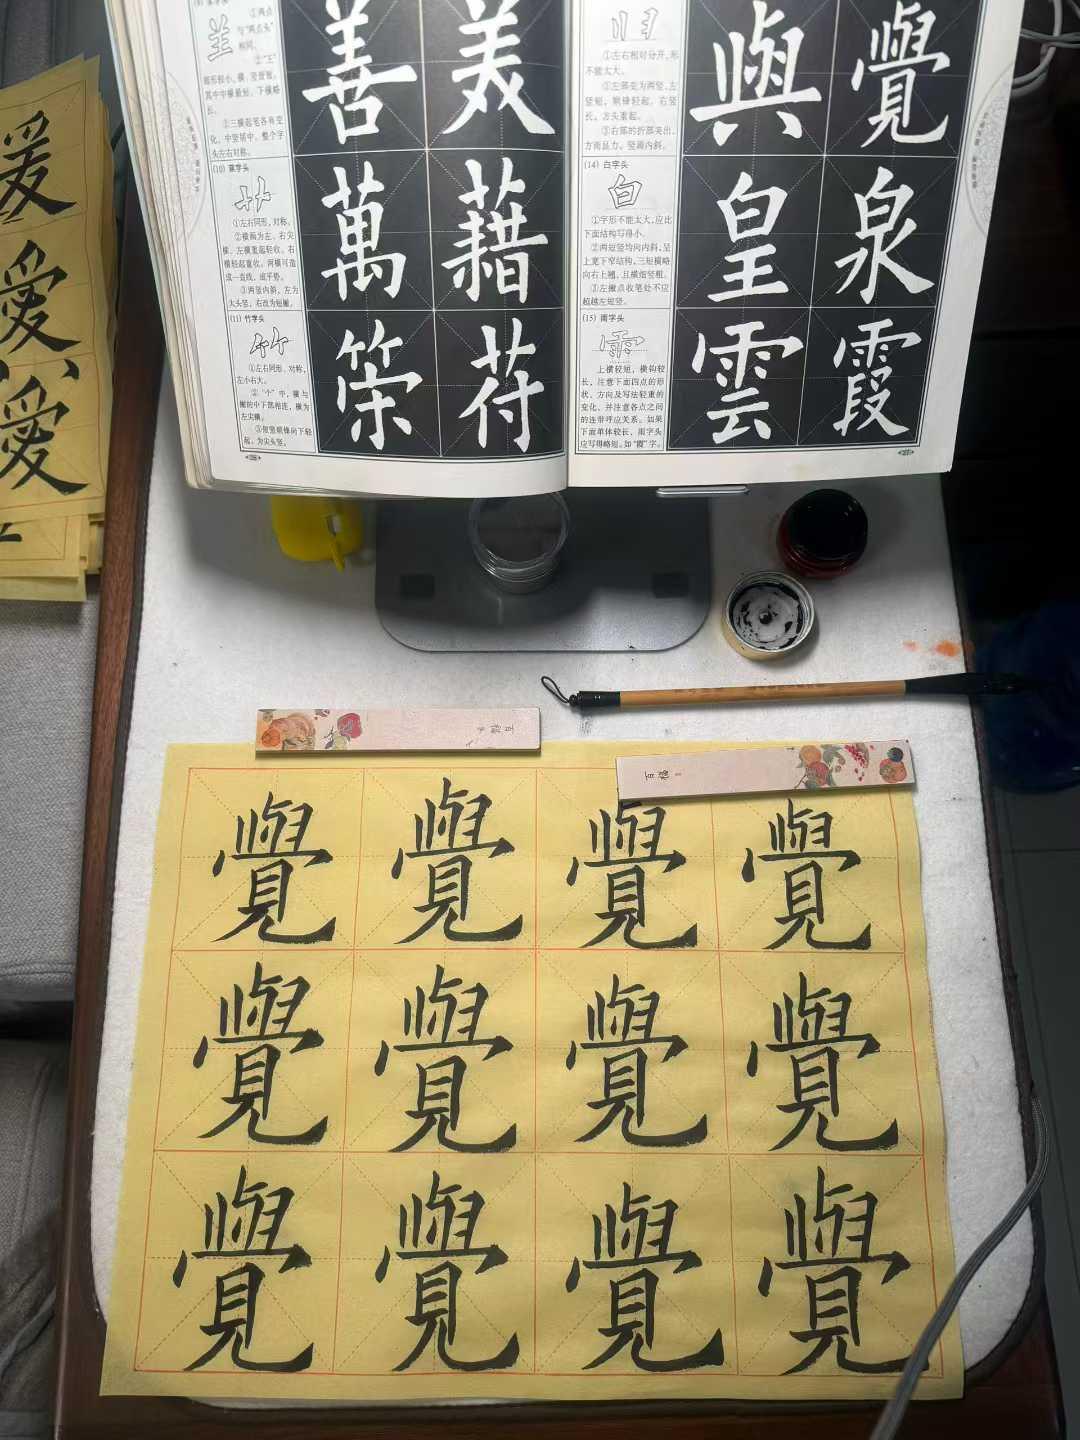 ①两点
与“两点头”
相同。
②“王”
长。
③三横起笔各有变
化，中竖居中，整个字
头左右对称。
善 美
(10) 草字头
①左右同形，对称。
③两竖内斜，左为
萬 藉
(11) 竹字头
①左右同形、对称，
左小右大。
②“个”中，横与
撇的中下部相连，横为
左尖横。
③短竖顺锋向下轻
起，为尖头竖。
荣 符
①左右相对分开，形
不能太大。
②左部变为两竖，左
竖短，顺锋轻起，右竖
长，方头重起。
③右部的折部突出，
方而且力，竖画内斜。
與 覺
(14) 白字头
白
①字形不能太大，应比
下面结构写得小。
②两短竖均向内斜，呈
上宽下窄结构，三短横略
向右上翘，且横细竖粗。
③左撇点收笔处不应
超越左短竖。
皇 泉
(15) 雨字头
上横较短，横钩较
长，注意下面四点的形
状、方向及写法轻重的
变化，并注意各点之间
的连带呼应关系。如果
下面单体较长，雨字头
应写得略短。如“霞”字。
雲 霞
愛
愛
愛
覺 覺 覺 覺
覺 覺 覺 覺
覺 覺 覺 覺